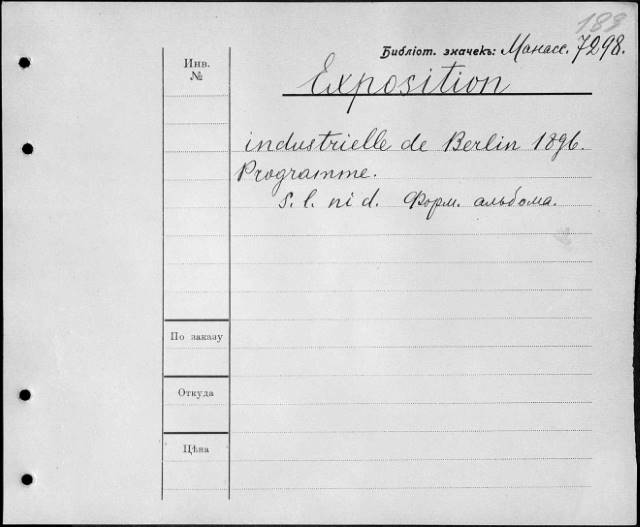 183
Библіот. значекъ: Манасс. 7298.
Инв.
№
Exposition
industrielle de Berlin 1896.
Programme.
S. l. ni d. Форм. альбома.
По заказу
Откуда
Цѣна